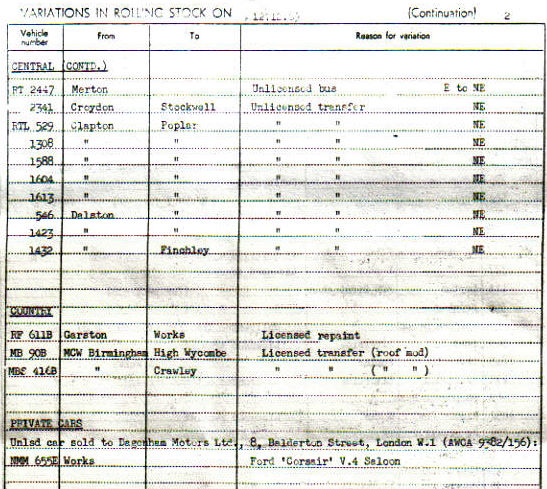 VARIATIONS IN ROLLING STOCK ON (Continuation) 2
Vehicle number From To Reason for variation
CENTRAL (CONTD.)
RT 2447 Merton Unlicensed bus E to NE
2341 Croydon Stockwell Unlicensed transfer NE
RTL 529 Clapton Poplar " " NE
1308 " " " " NE
1588 " " " " NE
1604 " " " " NE
1613 " " " " NE
546 Dalston " " " NE
1423 " " " " NE
1432 " Finchley " " NE
COUNTRY
RF 611B Garston Works Licensed repaint
MB 90B MCW Birmingham High Wycombe Licensed transfer (roof mod)
MBS 416B " Crawley " " ( " " )
PRIVATE CARS
Unlsd car sold to Dagenham Motors Ltd., 8, Balderton Street, London W.1 (AWOA 9-82/156):
NMM 655E Works Ford 'Corsair' V.4 Saloon